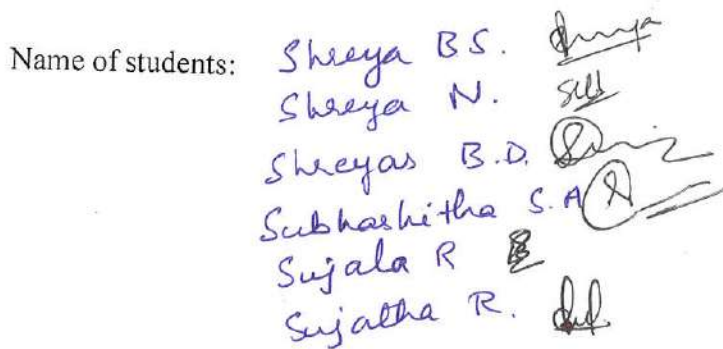 Name of students: Shreya B S.
Shreya N.
Shreyas B.D.
Subhashitha S.A
Sujala R
Sujatha R.